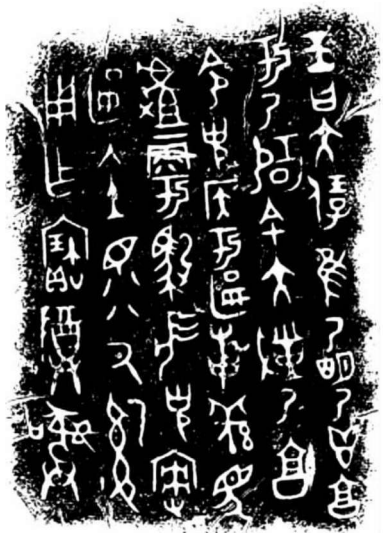 王曰大保隹乃明乃鬯享
于乃辟余大對乃享
令克侯于匽羌馬
雩馭微克
匽入土眔厥
用乍寶尊彝